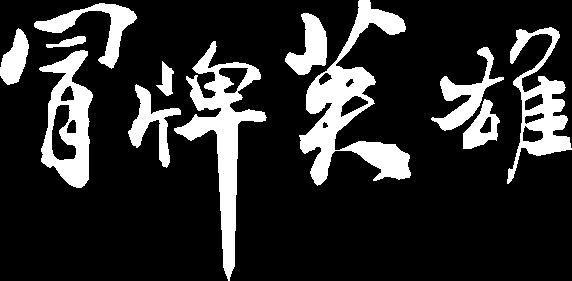 冒牌英雄